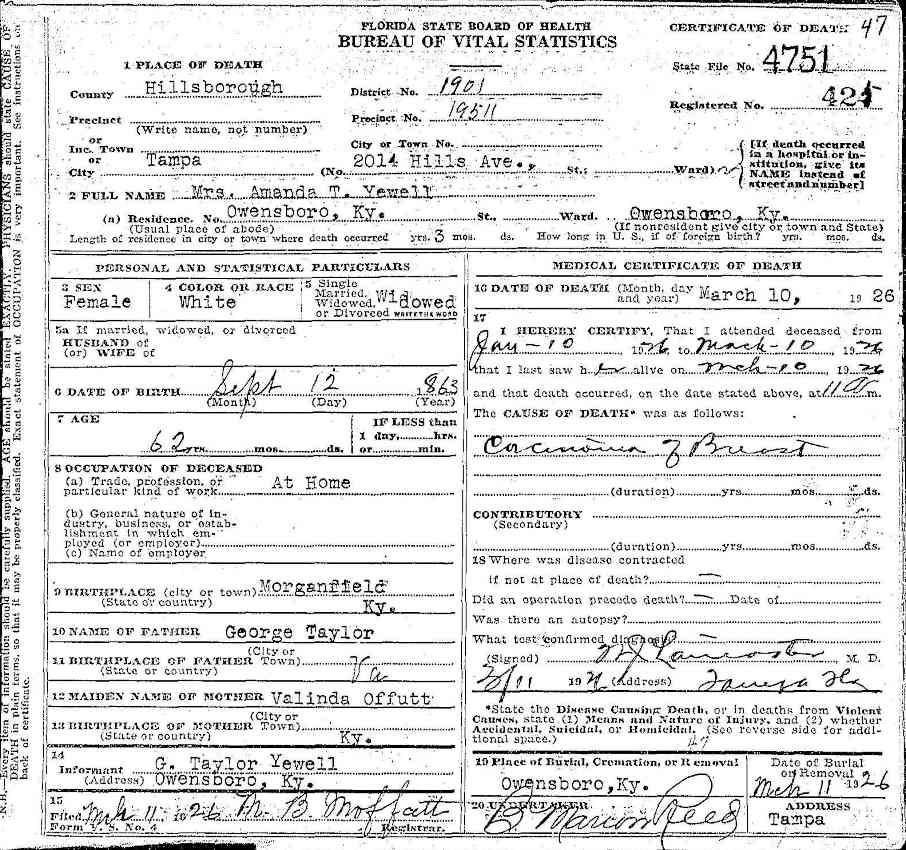 FLORIDA STATE BOARD OF HEALTH
BUREAU OF VITAL STATISTICS
CERTIFICATE OF DEATH 47
State File No. 4751
Registered No. 425
1 PLACE OF DEATH
County Hillsborough
District No. 1901
Precinct
(Write name, not number)
Precinct No. 19511
or
Inc. Town
or
City Tampa
City or Town No.
(No. 2014 Hills Ave., St.; Ward)
[If death occurred
in a hospital or in-
stitution, give its
NAME instead of
street and number]
2 FULL NAME Mrs. Amanda T. Yewell
(a) Residence. No. Owensboro, Ky. St., Ward. Owensboro, Ky.
(Usual place of abode) (If nonresident give city or town and State)
Length of residence in city or town where death occurred yrs. 3 mos. ds. How long in U. S., if of foreign birth? yrs. mos. ds.
PERSONAL AND STATISTICAL PARTICULARS
3 SEX
Female
4 COLOR OR RACE
White
5 Single
Married,
Widowed,
or Divorced
Widowed
WRITE THE WORD
5a If married, widowed, or divorced
HUSBAND of
(or) WIFE of
6 DATE OF BIRTH Sept 12 1863
(Month) (Day) (Year)
7 AGE
62 yrs. mos. ds.
IF LESS than
1 day, hrs.
or min.
8 OCCUPATION OF DECEASED
(a) Trade, profession, or
particular kind of work At Home
(b) General nature of in-
dustry, business, or estab-
lishment in which em-
ployed (or employer)
(c) Name of employer
9 BIRTHPLACE (city or town) Morganfield
(State or country) Ky.
10 NAME OF FATHER George Taylor
11 BIRTHPLACE OF FATHER (City or Town)
(State or country) Va
12 MAIDEN NAME OF MOTHER Valinda Offutt
13 BIRTHPLACE OF MOTHER (City or Town)
(State or country) Ky.
14
Informant G. Taylor Yewell
(Address) Owensboro, Ky.
15
Filed Mch 11 1926 M. B. Moffatt
Registrar.
Form V. S. No. 4
MEDICAL CERTIFICATE OF DEATH
16 DATE OF DEATH (Month, day
and year) March 10, 1926
17
I HEREBY CERTIFY, That I attended deceased from
Jan-10 1926 to Mach-10 1926
that I last saw her alive on Mch-10, 1926
and that death occurred, on the date stated above, at 11 m.
The CAUSE OF DEATH* was as follows:
Carcinoma of Breast
(duration) yrs. mos. ds.
CONTRIBUTORY
(Secondary)
(duration) yrs. mos. ds.
18 Where was disease contracted
if not at place of death? —
Did an operation precede death? — Date of
Was there an autopsy?
What test confirmed diagnosis?
(Signed) Lancaster M. D.
3/11 192 (Address) Tampa Fla
*State the Disease Causing Death, or in deaths from Violent
Causes, state (1) Means and Nature of Injury, and (2) whether
Accidental, Suicidal, or Homicidal. (See reverse side for addi-
tional space.)
47
19 Place of Burial, Cremation, or Removal
Owensboro, Ky.
Date of Burial
or Removal
Mch 11 1926
20 UNDERTAKER
B. Marion Reed
ADDRESS
Tampa
N. B.—Every item of information should be carefully supplied. AGE should be stated EXACTLY. PHYSICIANS should state CAUSE OF
DEATH in plain terms, so that it may be properly classified. Exact statement of OCCUPATION is very important. See instructions on
back of certificate.